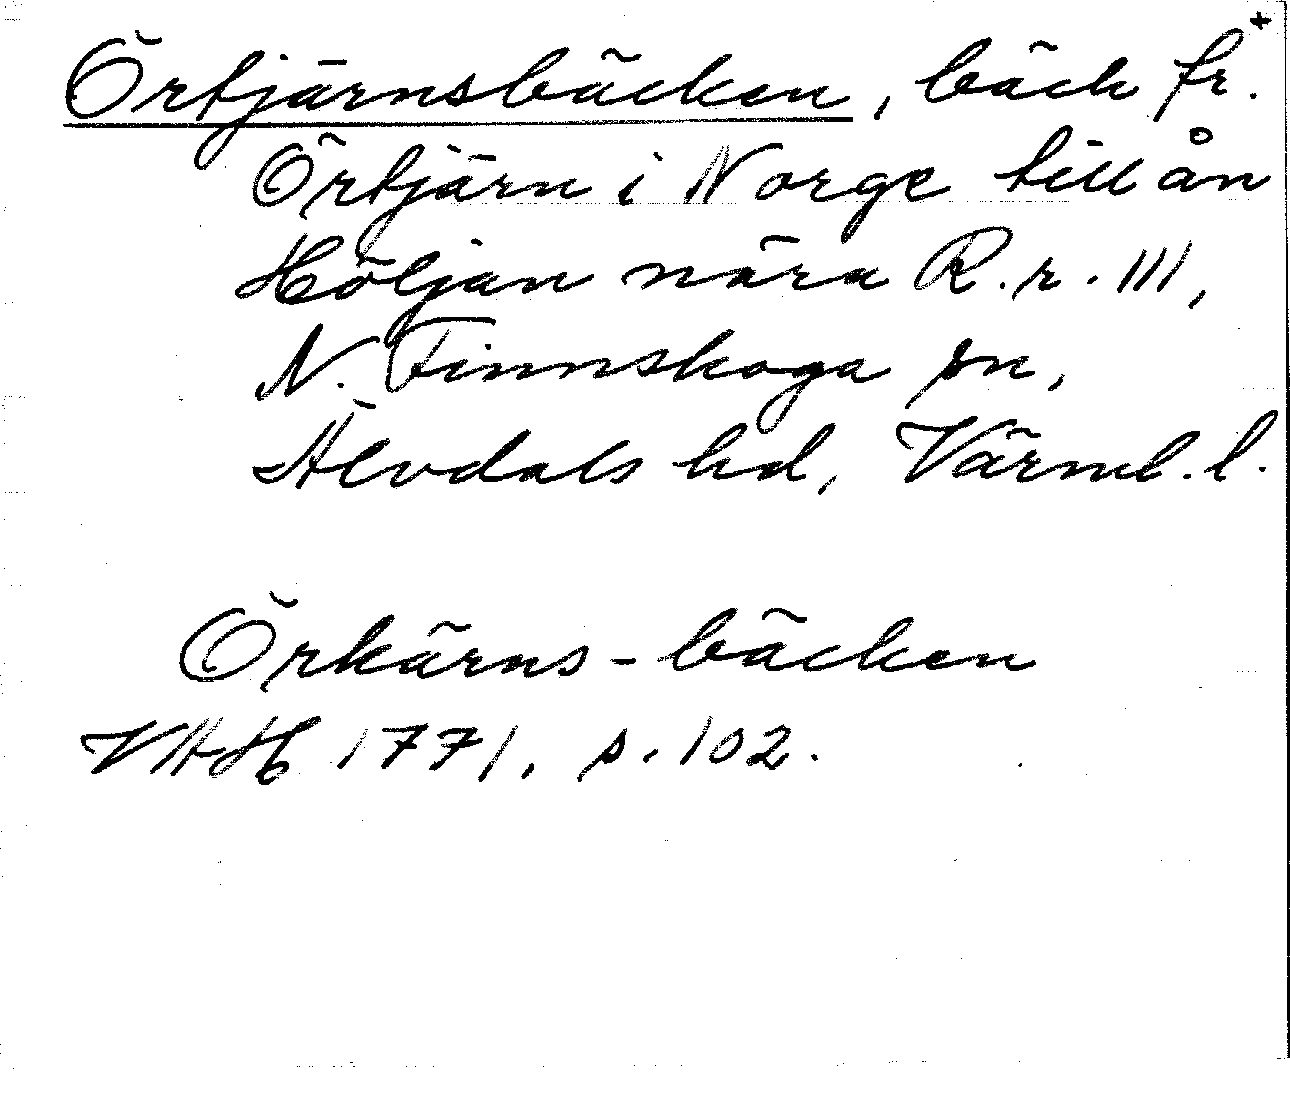 Örtjärnsbäcken, bäck fr. +
Örtjärn i Norge till ån
Höljan nära R.r. 111,
N. Finnskoga sn,
Älvdals hd, Värml. l.
Örkärns-bäcken
VAH 1771, s. 102.